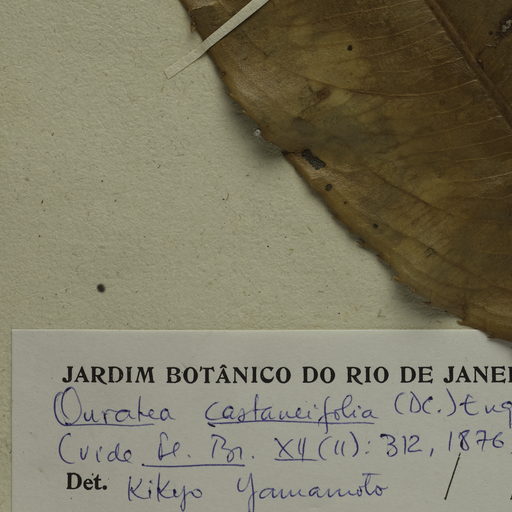 JARDIM BOTÂNICO DO RIO DE JANEI
Ouratea castaneifolia (DC.) Eng
(vide Fl. Br. XII (II): 312, 1876
Det. Kikyo Yamamoto / /